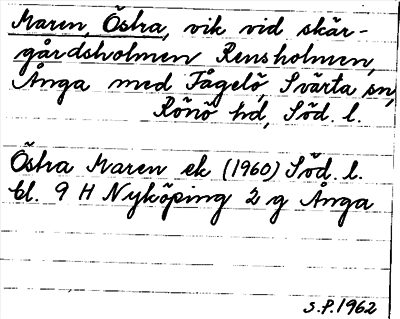 Maren, Östra, vik vid skär-
gårdsholmen Rensholmen,
Ånga med Fågelö, Svärta sn,
Rönö hd, Söd. l.
Östra Maren ek (1960) Söd. l.
bl. 9 H Nyköping 2 g Ånga
S.P. 1962